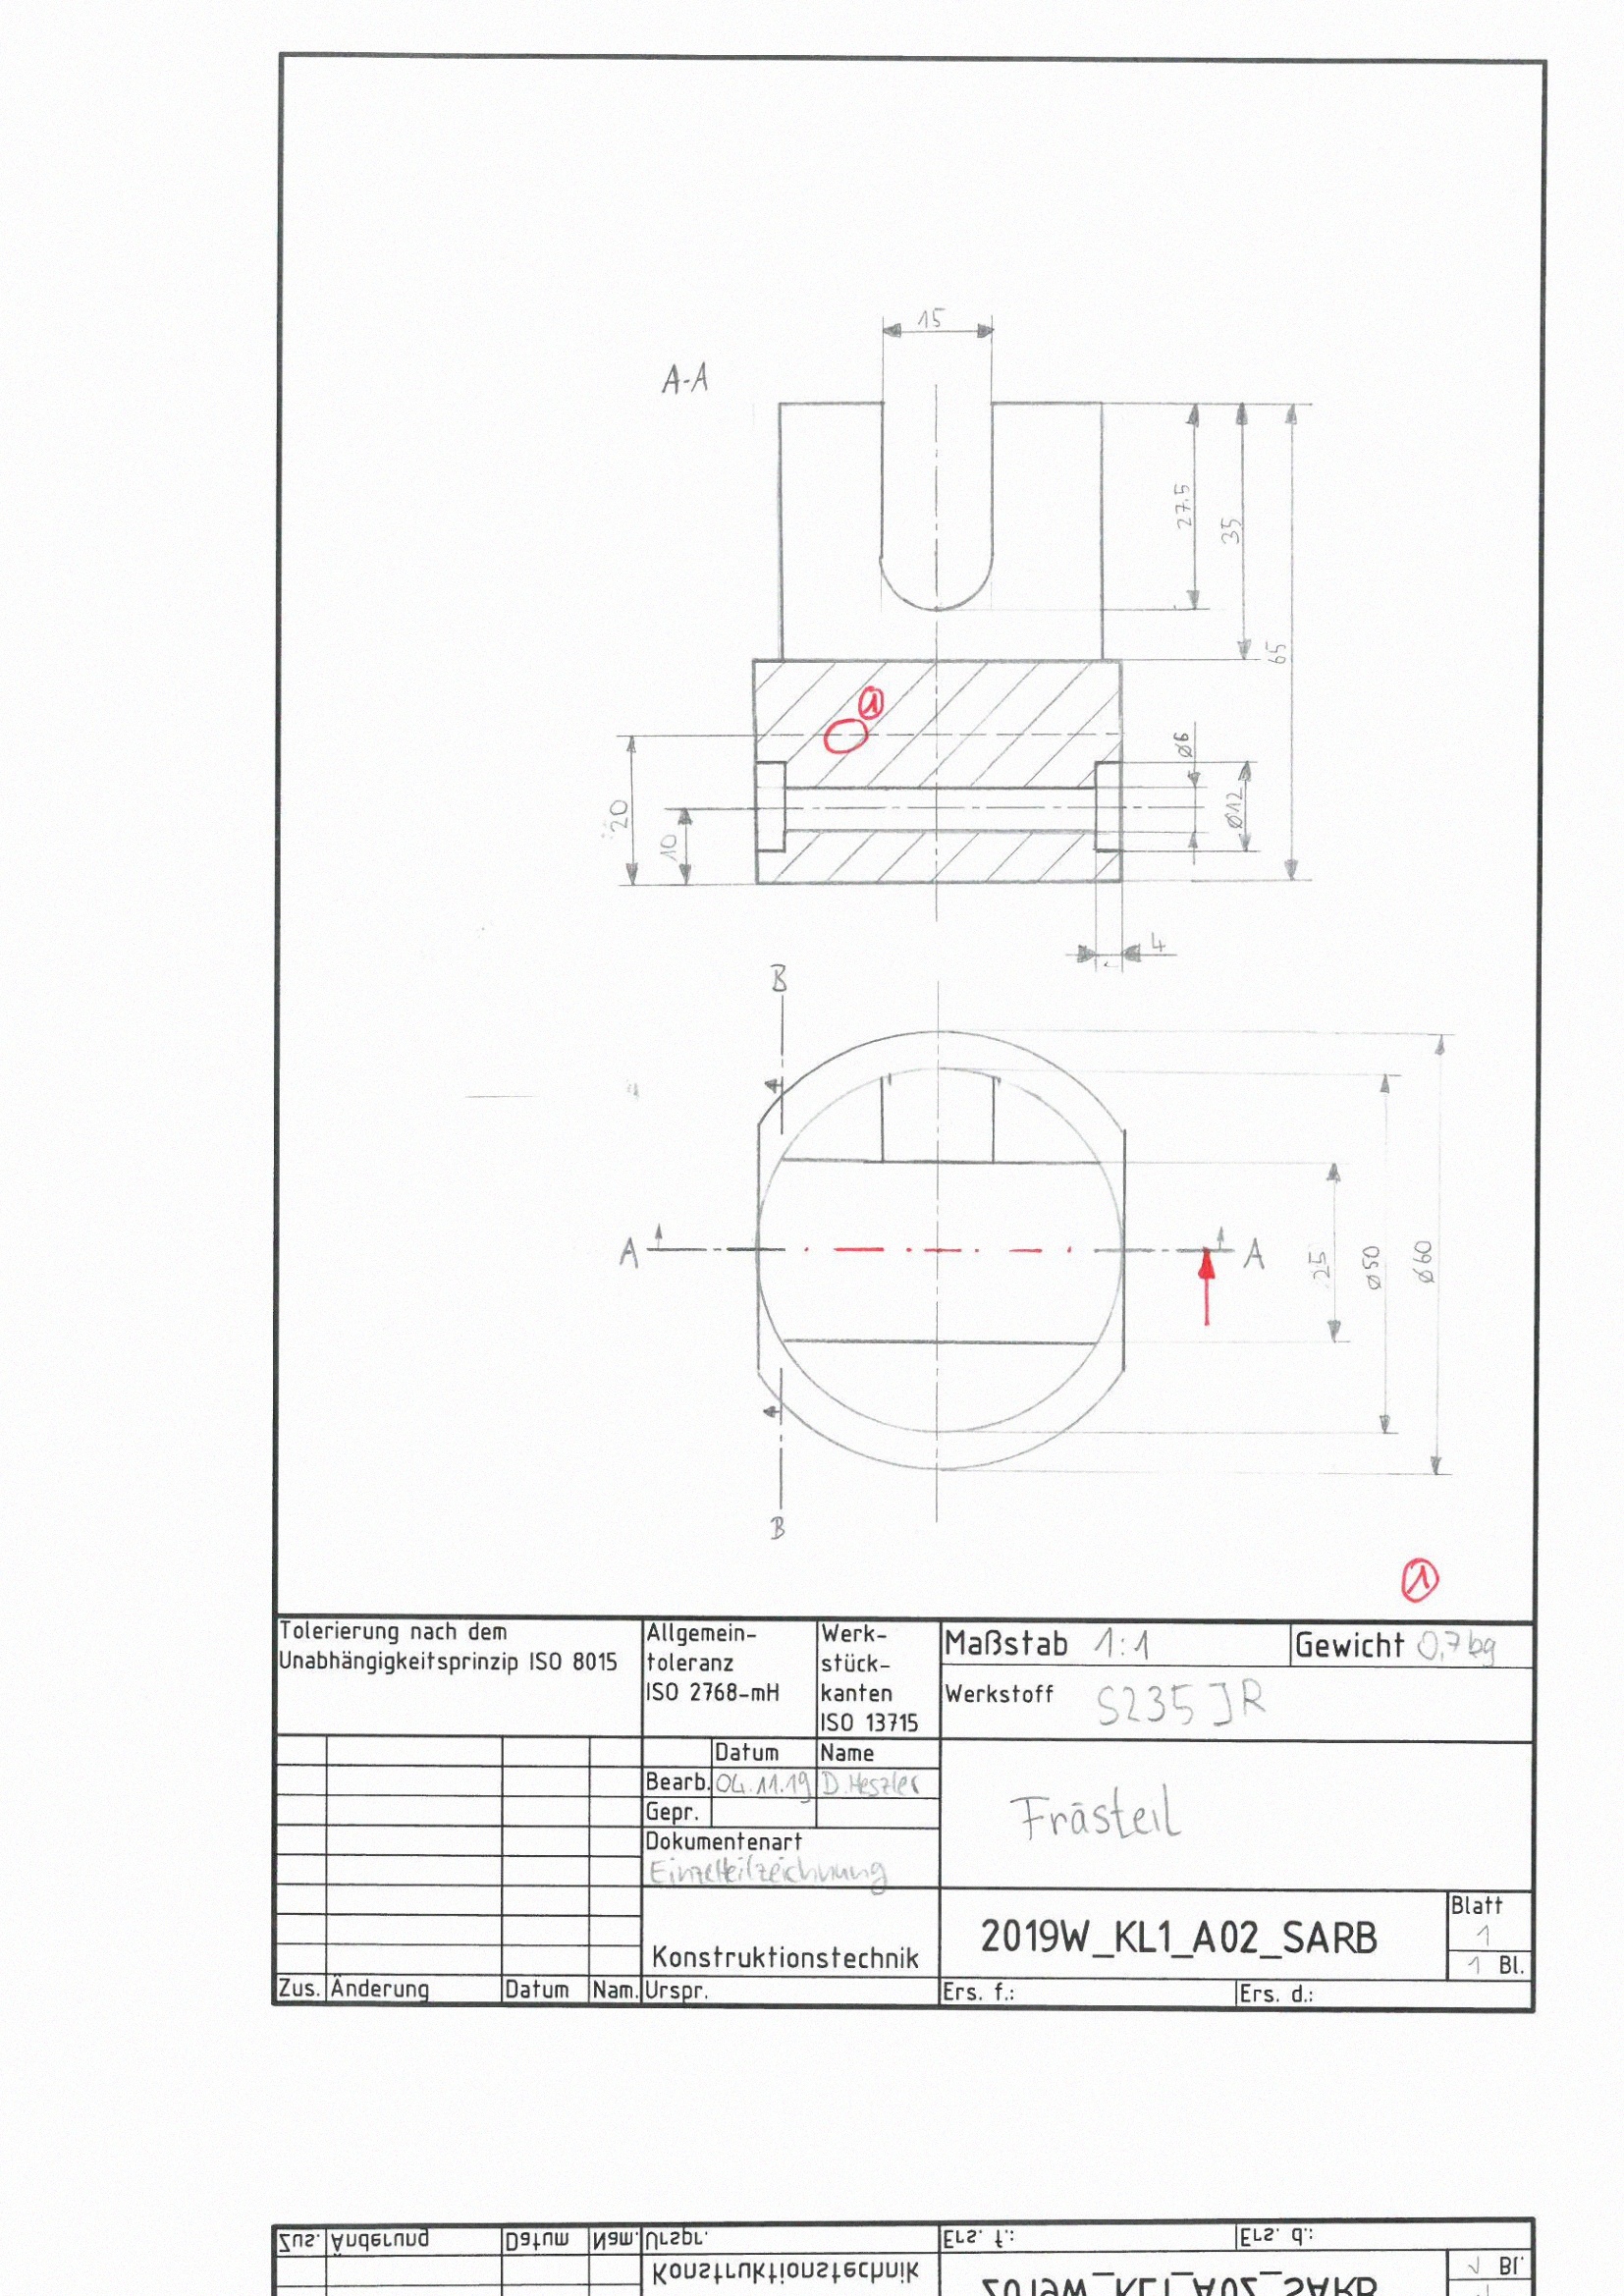 15
A-A
27.5
35
65
1
⌀6
⌀12
20
10
4
B
A
A
25
⌀50
⌀60
B
1
Tolerierung nach dem
Unabhängigkeitsprinzip ISO 8015
Allgemein-
toleranz
ISO 2768-mH
Werk-
stück-
kanten
ISO 13715
Maßstab 1:1
Gewicht 0,7kg
Werkstoff S235JR
Datum Name
Bearb. 04.11.19 D. Heszler
Gepr.
Dokumentenart
Einzelteilzeichnung
Frästeil
Konstruktionstechnik
2019W_KL1_A02_SARB
Blatt
1
1 Bl.
Zus. Änderung Datum Nam. Urspr. Ers. f.: Ers. d.:
Zus. Änderung Datum Nam. Urspr. Ers. f.: Ers. d.:
Konstruktionstechnik
2019W_KL1_A02_SARB
1 Bl.